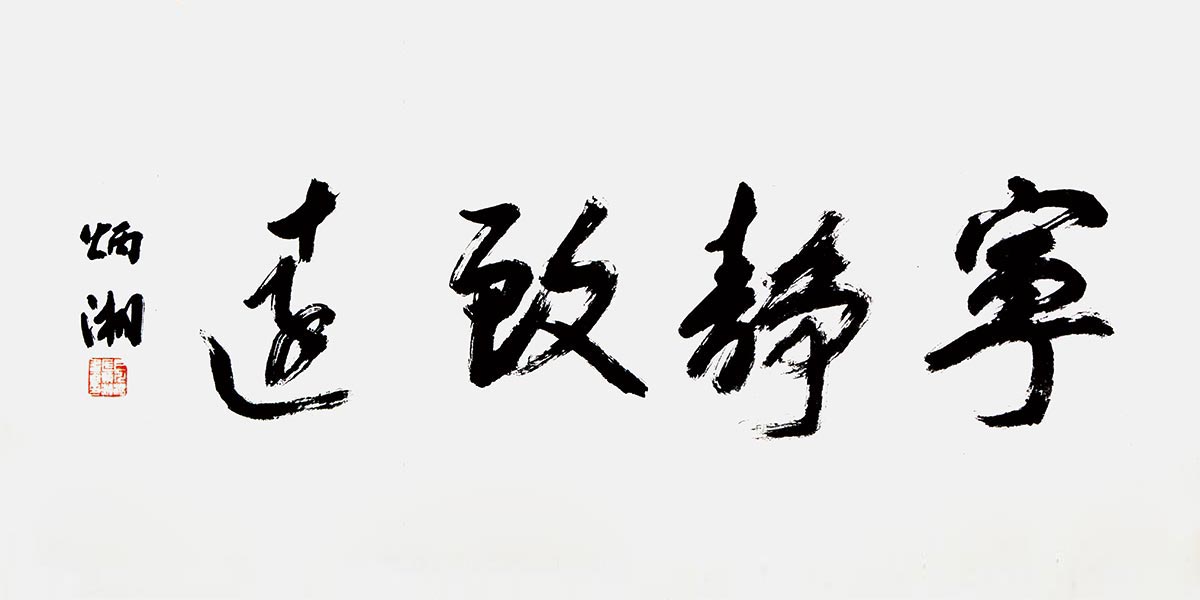 寧靜致遠
炳湘